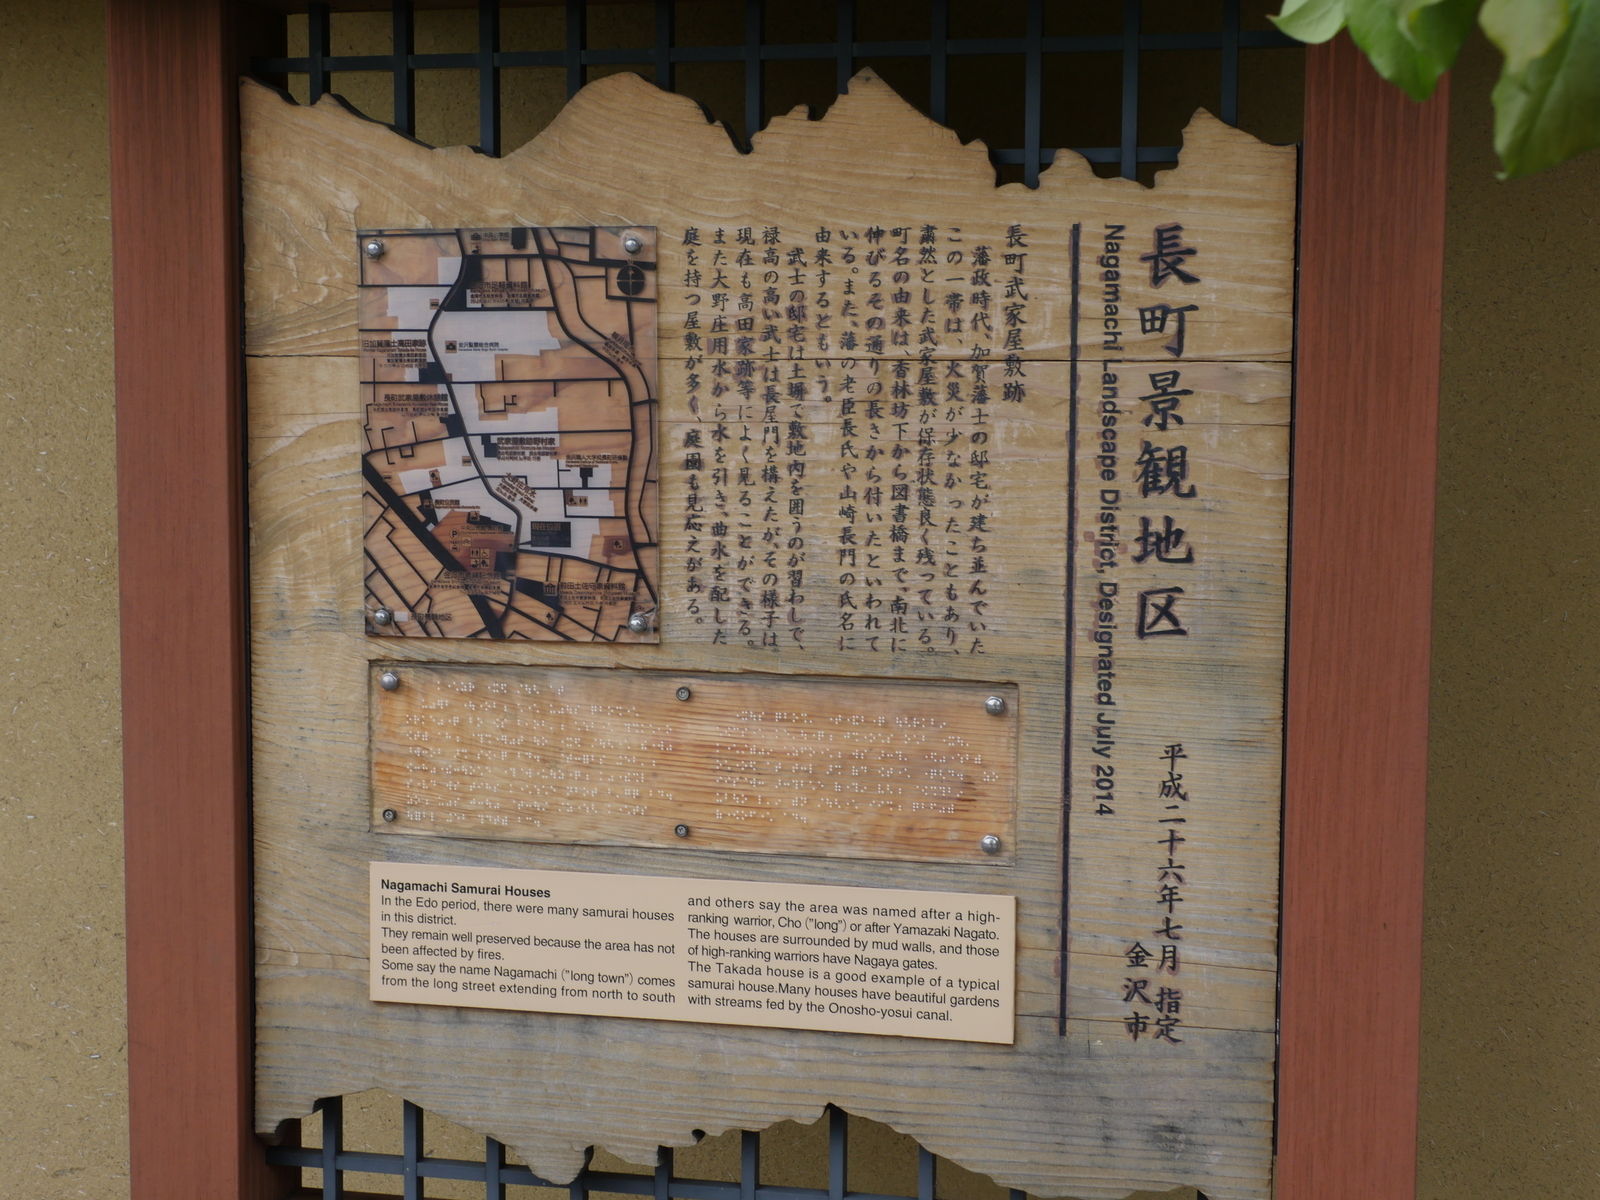 長町景観地区
Nagamachi Landscape District, Designated July 2014
平成二十六年七月 指定
金沢市
長町武家屋敷跡
藩政時代、加賀藩士の邸宅が建ち並んでいた
この一帯は、火災が少なかったこともあり、
粛然とした武家屋敷が保存状態良く残っている。
町名の由来は、香林坊下から図書橋まで、南北に
伸びるその通りの長さから付いたといわれて
いる。また、藩の老臣長氏や山崎長門の氏名に
由来するともいう。
武士の邸宅は土塀で敷地内を囲うのが習わしで、
禄高の高い武士は長屋門を構えたが、その様子は
現在も高田家跡等によく見ることができる。
また大野庄用水から水を引き、曲水を配した
庭を持つ屋敷が多く、庭園も見応えがある。
旧加賀藩士高田家跡
長町武家屋敷休憩館
武家屋敷跡野村家
金沢聖霊総合病院
前田土佐守家資料館
Nagamachi Samurai Houses
In the Edo period, there were many samurai houses
in this district.
They remain well preserved because the area has not
been affected by fires.
Some say the name Nagamachi ("long town") comes
from the long street extending from north to south
and others say the area was named after a high-
ranking warrior, Cho ("long") or after Yamazaki Nagato.
The houses are surrounded by mud walls, and those
of high-ranking warriors have Nagaya gates.
The Takada house is a good example of a typical
samurai house.Many houses have beautiful gardens
with streams fed by the Onosho-yosui canal.